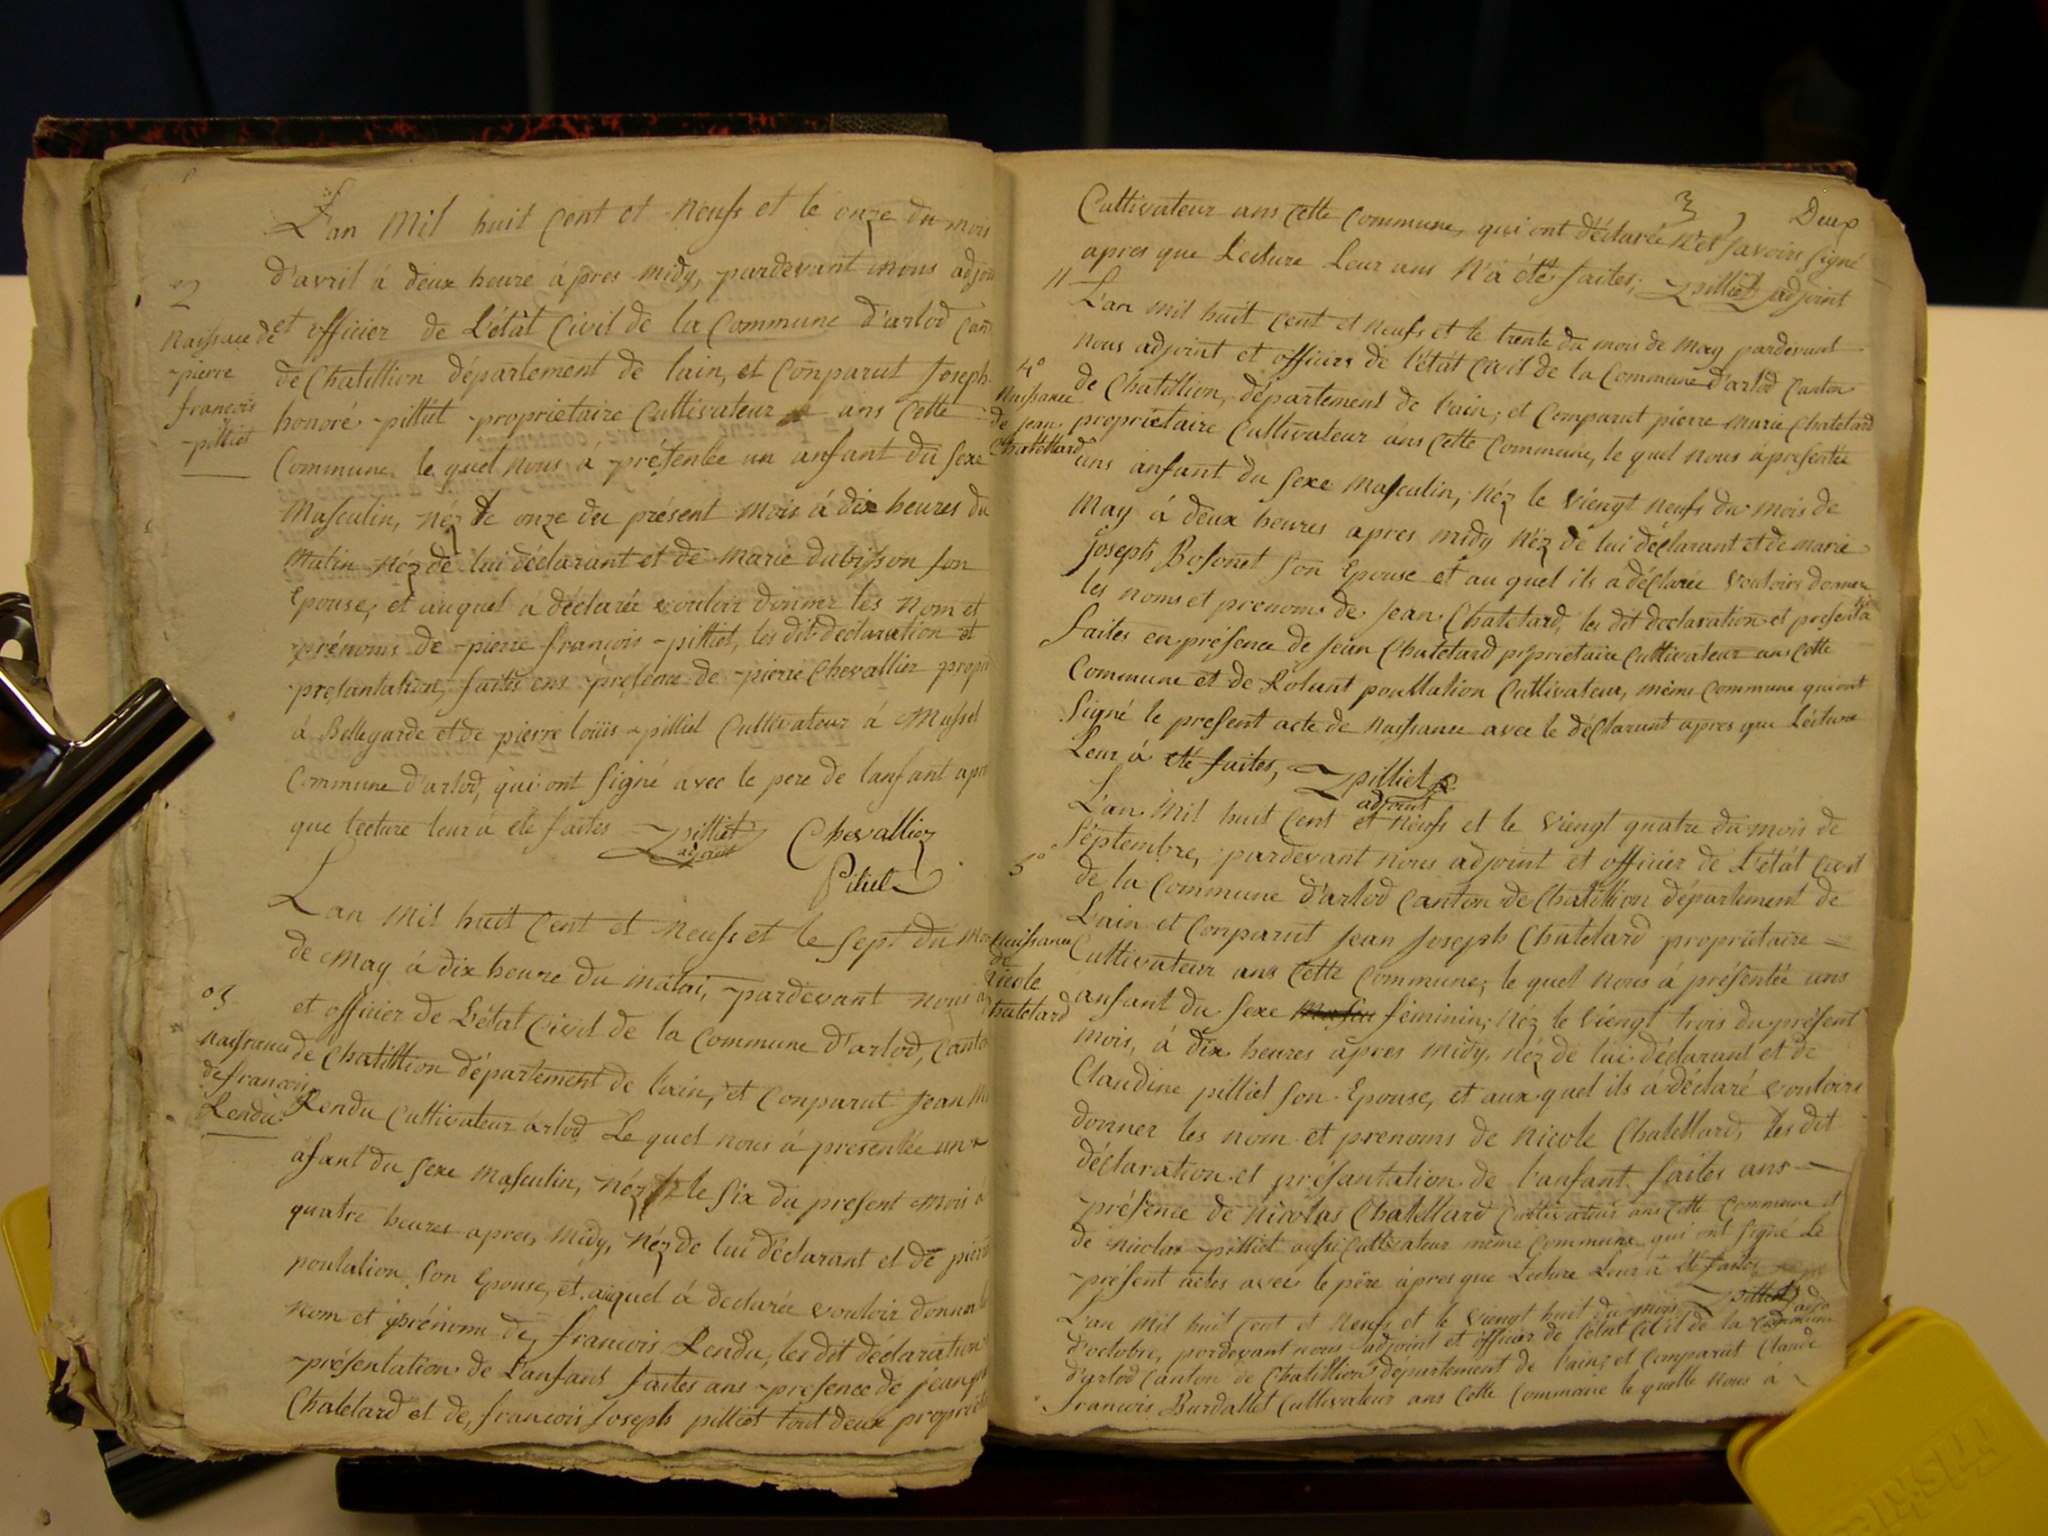 L'an mil huit Cent et neufs et le onze du mois
d'avril à deux heure âpres midy, pardevant nous adjoi
2
Naissance de
pierre
françois
pilliet
et officier de L'êtât Civil de la Commune d'arlod Can
de Chatillion département de lain, et Conparut Joseph
honoré pilliet proprietaire Cultivateur ans Cette
Commune le quel nous à présentée un anfant du sexe
Masculin, néz le onze du présent mois à dix heures du
matin néz de lui déclarant et de marie dubisson son
Epouse, et auquel à déclarée vouloir donner les nom et
prénoms de pierre françois pilliet, les dit déclaration et
presantation, faites ens présence de pierre Chevallier propri
à Bellegarde et de pierre loüis pilliet Cultivateur à Mussel
Commune d'arlod, qui ont signé avec le pere de lanfant apr
que lecture leur à été faites pilliet Chevallier
adjoint
Pilliet
L'an mil huit Cent et neufs et le sept du mo
de May à dix heure du matai, pardevant nous a
3
Naissance
de françois
Lendu
et officier de L'état Civil de la Commune d'arlod, Canto
de Chatillion département de lain, et Conparut Jean M
Lendu Cultivateur arlod Le quel nous à presentée un
afant du sexe masculin, néz le six du present mois à
quatre heures apres midy, néz de lui déclarant et de pier
poulalion son Epouse, et auquel à declarée vouloir donner
nom et prénoms de, francois Lendu, les dit déclaration
présentation de L'anfant faites ans presence de jean
Chatelard et de, francois Joseph pilliet tout deux propriet
3 Deux
Cultivateur ans Cette Commune, qui ont déclarée N'et savoirs signé
apres que Lecture Leur ans N'à été faites; pilliet adjoint
11 L'an mil huit Cent et neufs et le trente du mois de may pardevant
nous adjoint et officiers de l'état Civil de la Commune d'arlod Canton
4°
Naissance
de jean
Chatellard
de Chatillion, département de l'ain; et Comparut pierre marie Chatelard
proprietaire Cultivateur ans Cette Commune, le quel nous à presentée
uns anfant du sexe masculin, néz le viengt neufs du mois de
May à deux heures apres midy néz de lui déclarant et de marie
joseph Bosonet son Epouse et au quel ils a déclarée vouloirs donner
les noms et prenoms de jean Chatelard, les dit declaration et presenta
faites en présence de jean Chatelard proprietaire Cultivateur ans Cette
Commune et de Rolant poullalion Cultivateur, même Commune qui ont
signé le present acte de naissance avec le déclarant apres que Lécture
Leur à été faites, pilliet
adjoint
L'an mil huit Cent et neufs et le viengt quatre du mois de
septembre, pardevant nous adjoint et officier de L'étât Civil
5°
Naissance
de
Nicole
Chatelard
de la Commune d'arlod Canton de Chatillion département de
L'ain et Conparut jean joseph Chatelard proprietaire
Cultivateur ans Cette Commune; le quel nous à présentée uns
anfant du sexe féminin, néz le viengt trois du présent
mois, à dix heures apres midy, néz de lui déclarant et de
Claudine pilliet son Epouse, et aux quel ils à déclaré vouloirs
donner les nom et prenoms de nicole Chatellard, Les dit
déclaration et présantation de l'anfant faites ans
présence de nicolas Chatellard Cultivateur ans Cette Commune et
de nicolas pilliet aussi Cultivateur même Commune qui ont signé Le
présent actes avec le père âpres que Lecture Leur à été faites
pilliet adjo
L'an mil huit Cent et neufs et le viengt huit du mois
d'octobre, pardevant nous adjoint et officier de l'état Civil de la Commune
d'arlod Canton de Chatillion département de l'ain; et Comparut Claude
francois Burdallet Cultivateur ans Cette Commune le quelle nous à